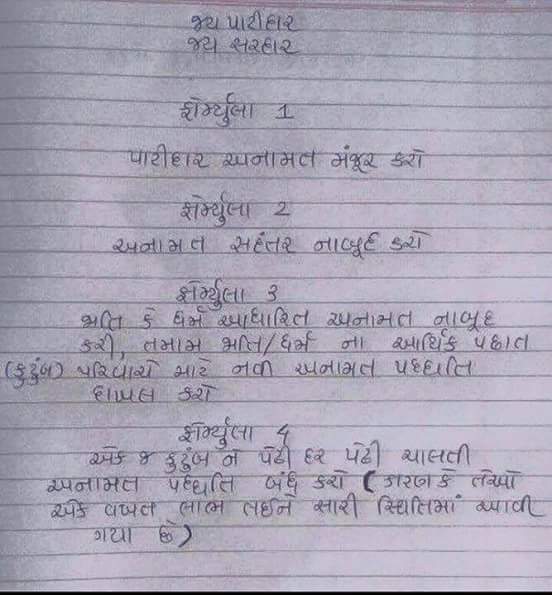 જય પાટીદાર
જય સરદાર
ફોર્મ્યુલા 1
પાટીદાર અનામત મંજૂર કરો
ફોર્મ્યુલા 2
અનામત સદંતર નાબૂદ કરો
ફોર્મ્યુલા 3
જાતિ કે ધર્મ આધારિત અનામત નાબૂદ
કરી, તમામ જાતિ/ધર્મ ના આર્થિક પછાત
(કુટુંબ) પરિવારો માટે નવી અનામત પધ્ધતિ
દાખલ કરો
ફોર્મ્યુલા 4
એક જ કુટુંબ ને પેઢી દર પેઢી ચાલતી
અનામત પધ્ધતિ બંધ કરો (કારણ કે તેઓ
એક વખત લાભ લઈને સારી સ્થિતિમાં આવી
ગયા છે)